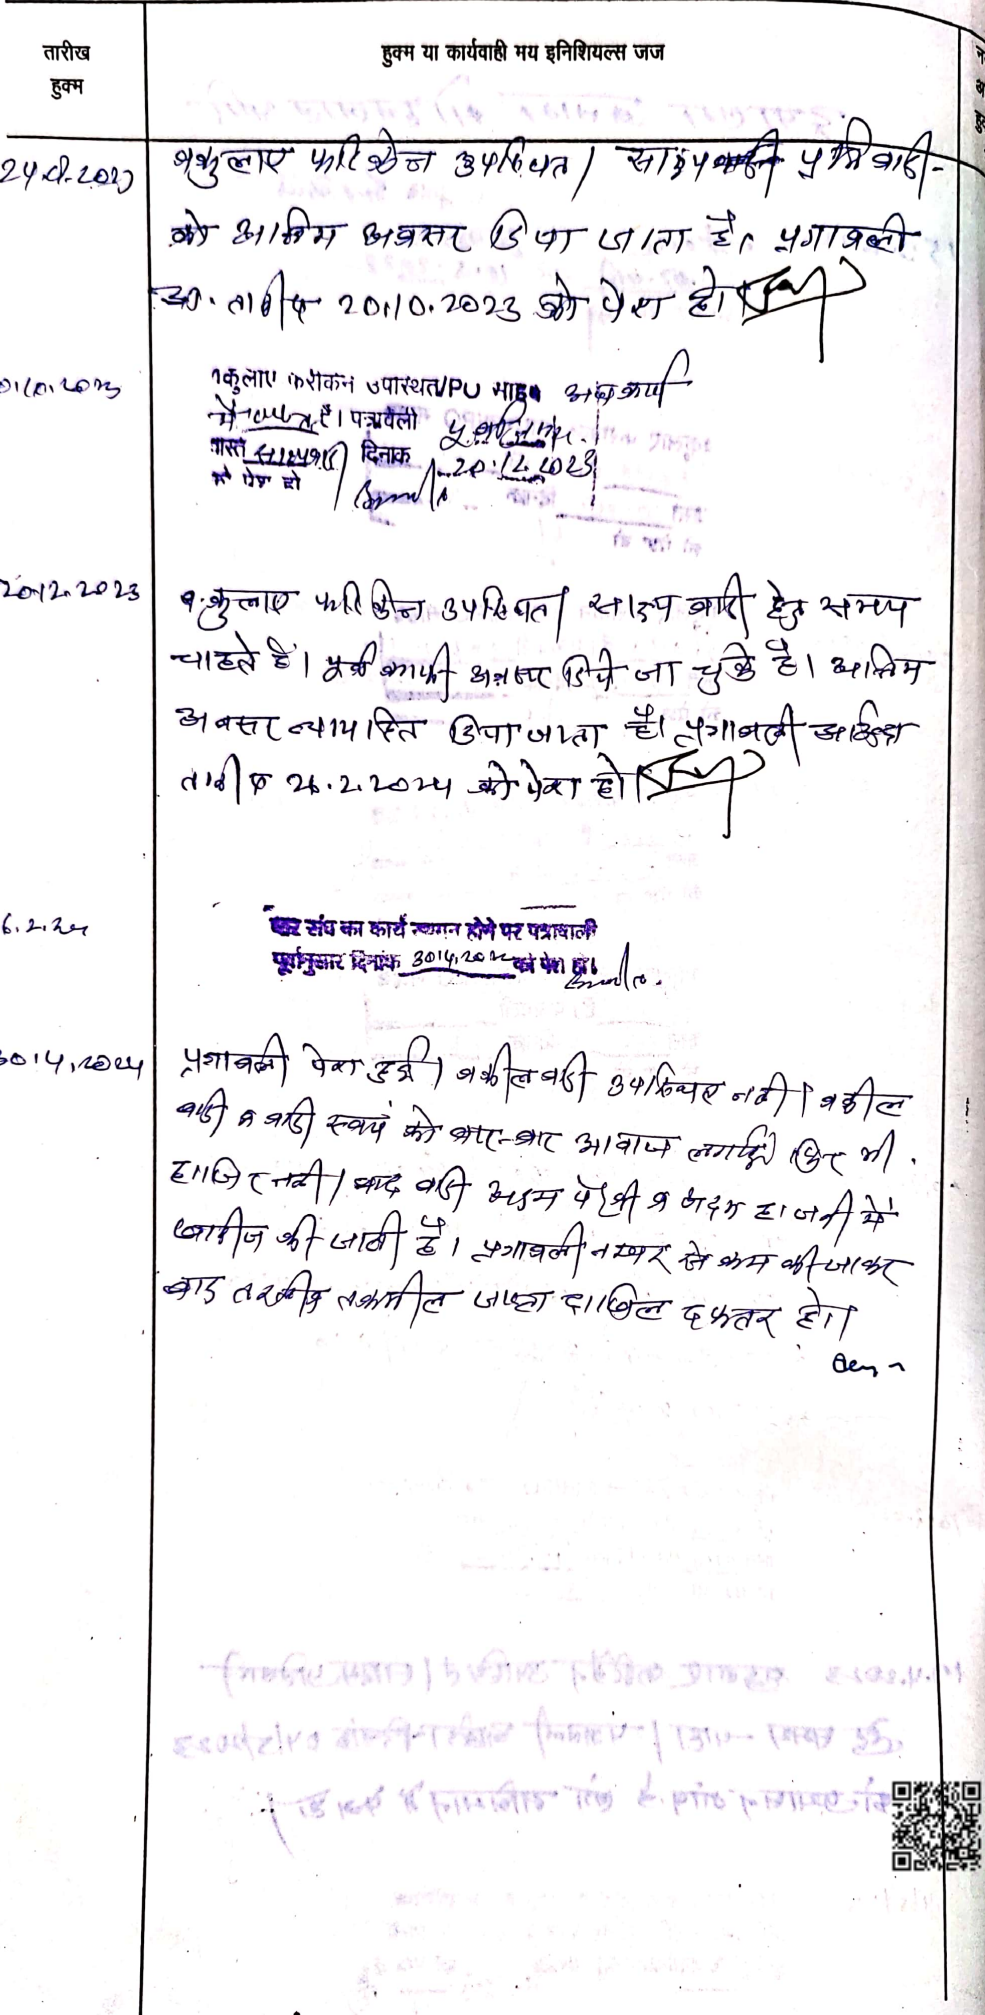 तारीख
हुक्म
हुक्म या कार्यवाही मय इनिशियल्स जज
वकुलाए फरिकेन उपस्थित। प्रतिवादी
को अन्तिम अवसर दिया जाता है। पत्रावली
तारीख 20.10.2023 को पेश हो।
वकुलाए फरीकेन उपस्थित/PO साहब अवकाश
में है। पत्रावली
वास्ते दिनांक 20.12.2023
को पेश हो
20.12.2023
वकुलाए फरिकेन उपस्थित। साक्ष्य वादी हेतु समय
चाहते है। पूर्व काफी अवसर दिये जा चुके है। अन्तिम
अवसर न्यायहित दिया जाता है। पत्रावली आईन्दा
तारीख 26.2.2024 को पेश हो।
6.2.24
बार संघ का कार्य स्थगन होने पर पत्रावली
पूर्वानुसार दिनांक 30.4.2024 को पेश हो।
30.4.2024
पत्रावली पेश हुई। वकील वादी उपस्थित नही। वकील
वादी व वादी स्वयं को बार-बार आवाज लगाई फिर भी
हाजिर नही। वाद वादी अदम पैरवी व अदम हाजरी में
खारीज की जाती है। पत्रावली नम्बर से कम की जाकर
बाद तरतीब तकमील जाप्ता दाखिल दफ्तर हो।